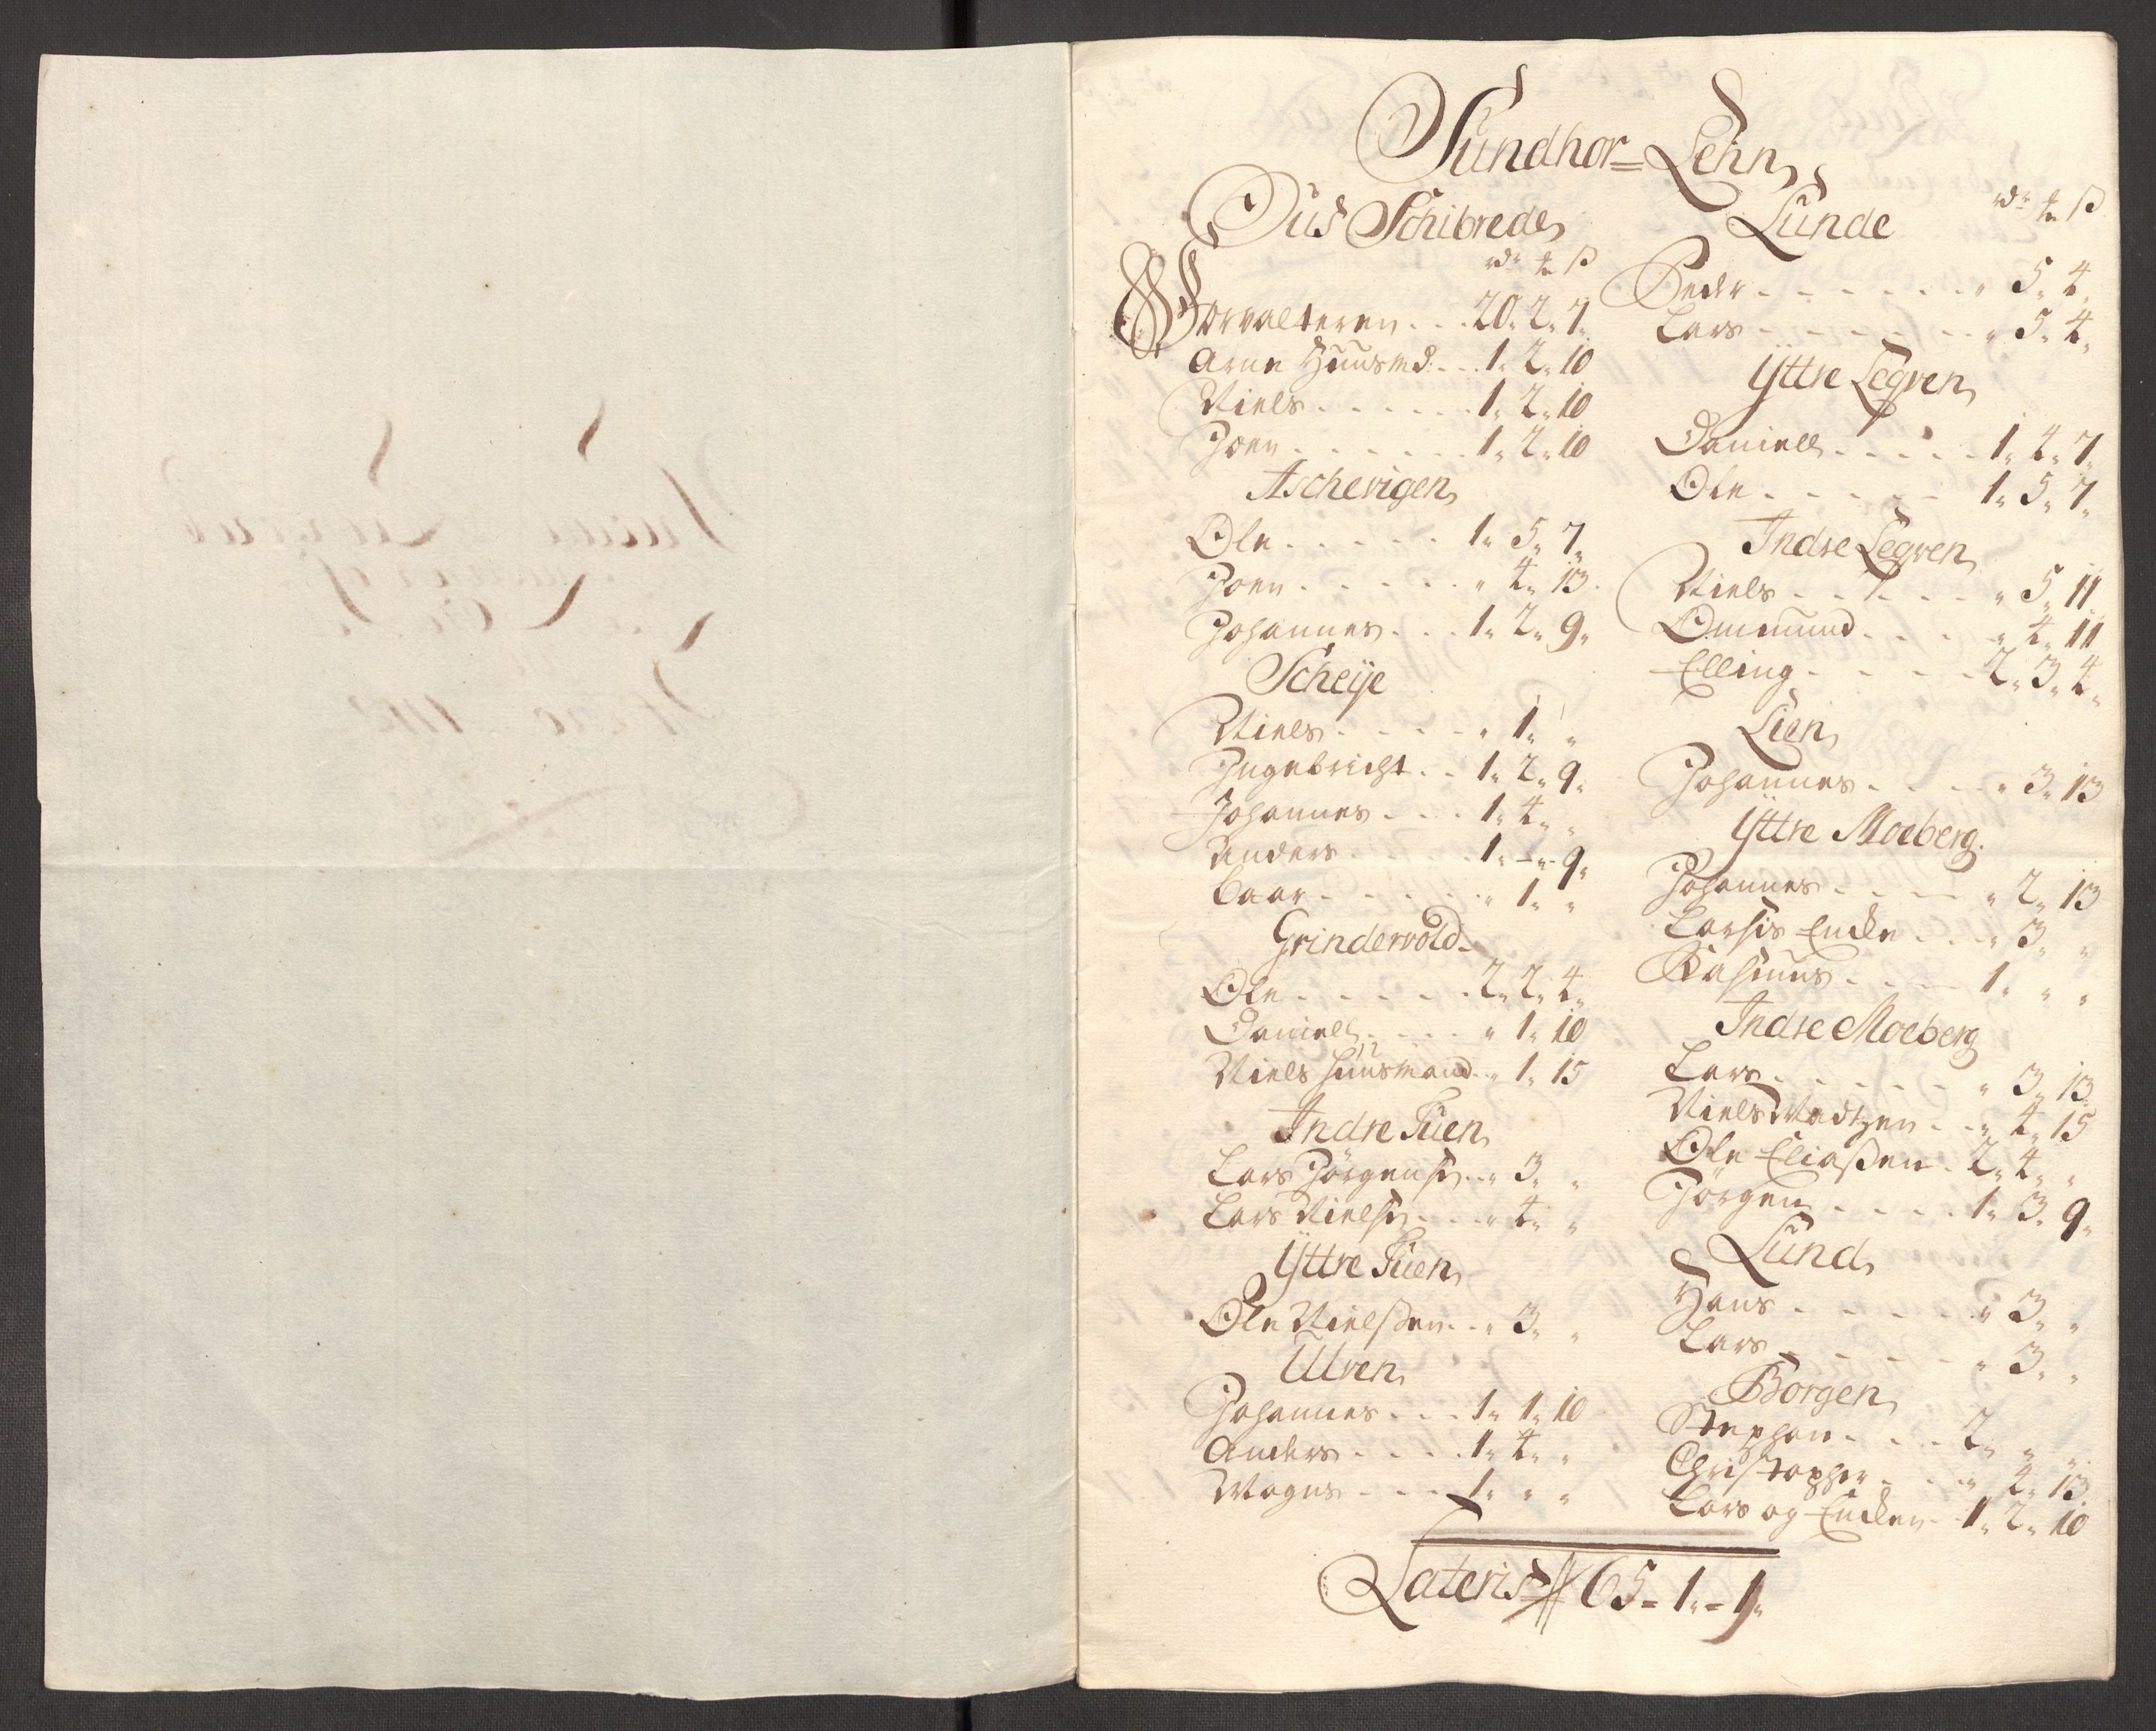 Sundhor=Lehn
Ous Schibrede
rdr mk ß
Forvalteren . . . 20„ 2„ 7„
Arne Huusmd: . . 1„ 2„ 10
Niels . . . . . . 1„ 2„ 10
Joen . . . . . . 1„ 2„ 10
Aschevigen
Ole . . . . . 1„ 5„ 7„
Joen . . . . . „ 4„ 13
Johannes . . . 1„ 2„ 9„
Scheije
Niels . . . . „ 1„ „
Ingebricht . . 1„ 2„ 9„
Johannes . . . 1„ 4„ „
Anders . . . . 1„ - „ 9„
Baar . . . . . „ 1„ „
Grindervold
Ole . . . . . 2„ 2„ 4„
Daniell . . . . „ 1„ 10
Niels Huusmand . „ 1„ 15
Indre Tuen
Lars Jörgens: . . „ 3„ „
Lars Niels: . . . „ 4„ „
Yttre Tuen
Ole Nielßen . . „ 3„ „
Ulven
Johannes . . . 1„ 1„ 10
Anders . . . . 1„ 4„ „
Mogns . . . . 1„ „ „
Lunde
rdr mk ß
Peder . . . . . . „ 5„ 4„
Lars . . . . . . „ 5„ 4„
Yttre Legven
Daniell . . . . . 1„ 4„ 7„
Ole . . . . . 1„ 5„ 7„
Indre Legven
Niels . . . . . „ 5„ 11
Ommund . . . . „ 4„ 11
Elling . . . . . 2„ 3„ 4„
Lien
Johannes . . . . „ 3„ 13
Yttre Moeberg.
Johannes . . . . „ 2„ 13
Larsis Encke . . . „ 3„ „
Rasmus . . . . 1„ „ „
Indre Moeberg
Lars . . . . . . „ 3„ 13
Niels Madtzen . . „ 4„ 15
Ole Eliaßen . 2„ 4„ „
Jörgen . . . . 1„ 3„ 9„
Lund
Hans . . . . . „ 3„ „
Lars . . . . . „ 3„ „
Borgen
Stephan . . . . 2„ „ „
Christopher . . . „ 4„ 13
Lars og Encken . 1„ 2„ 10
Lateris 65 - 1„ - 1„